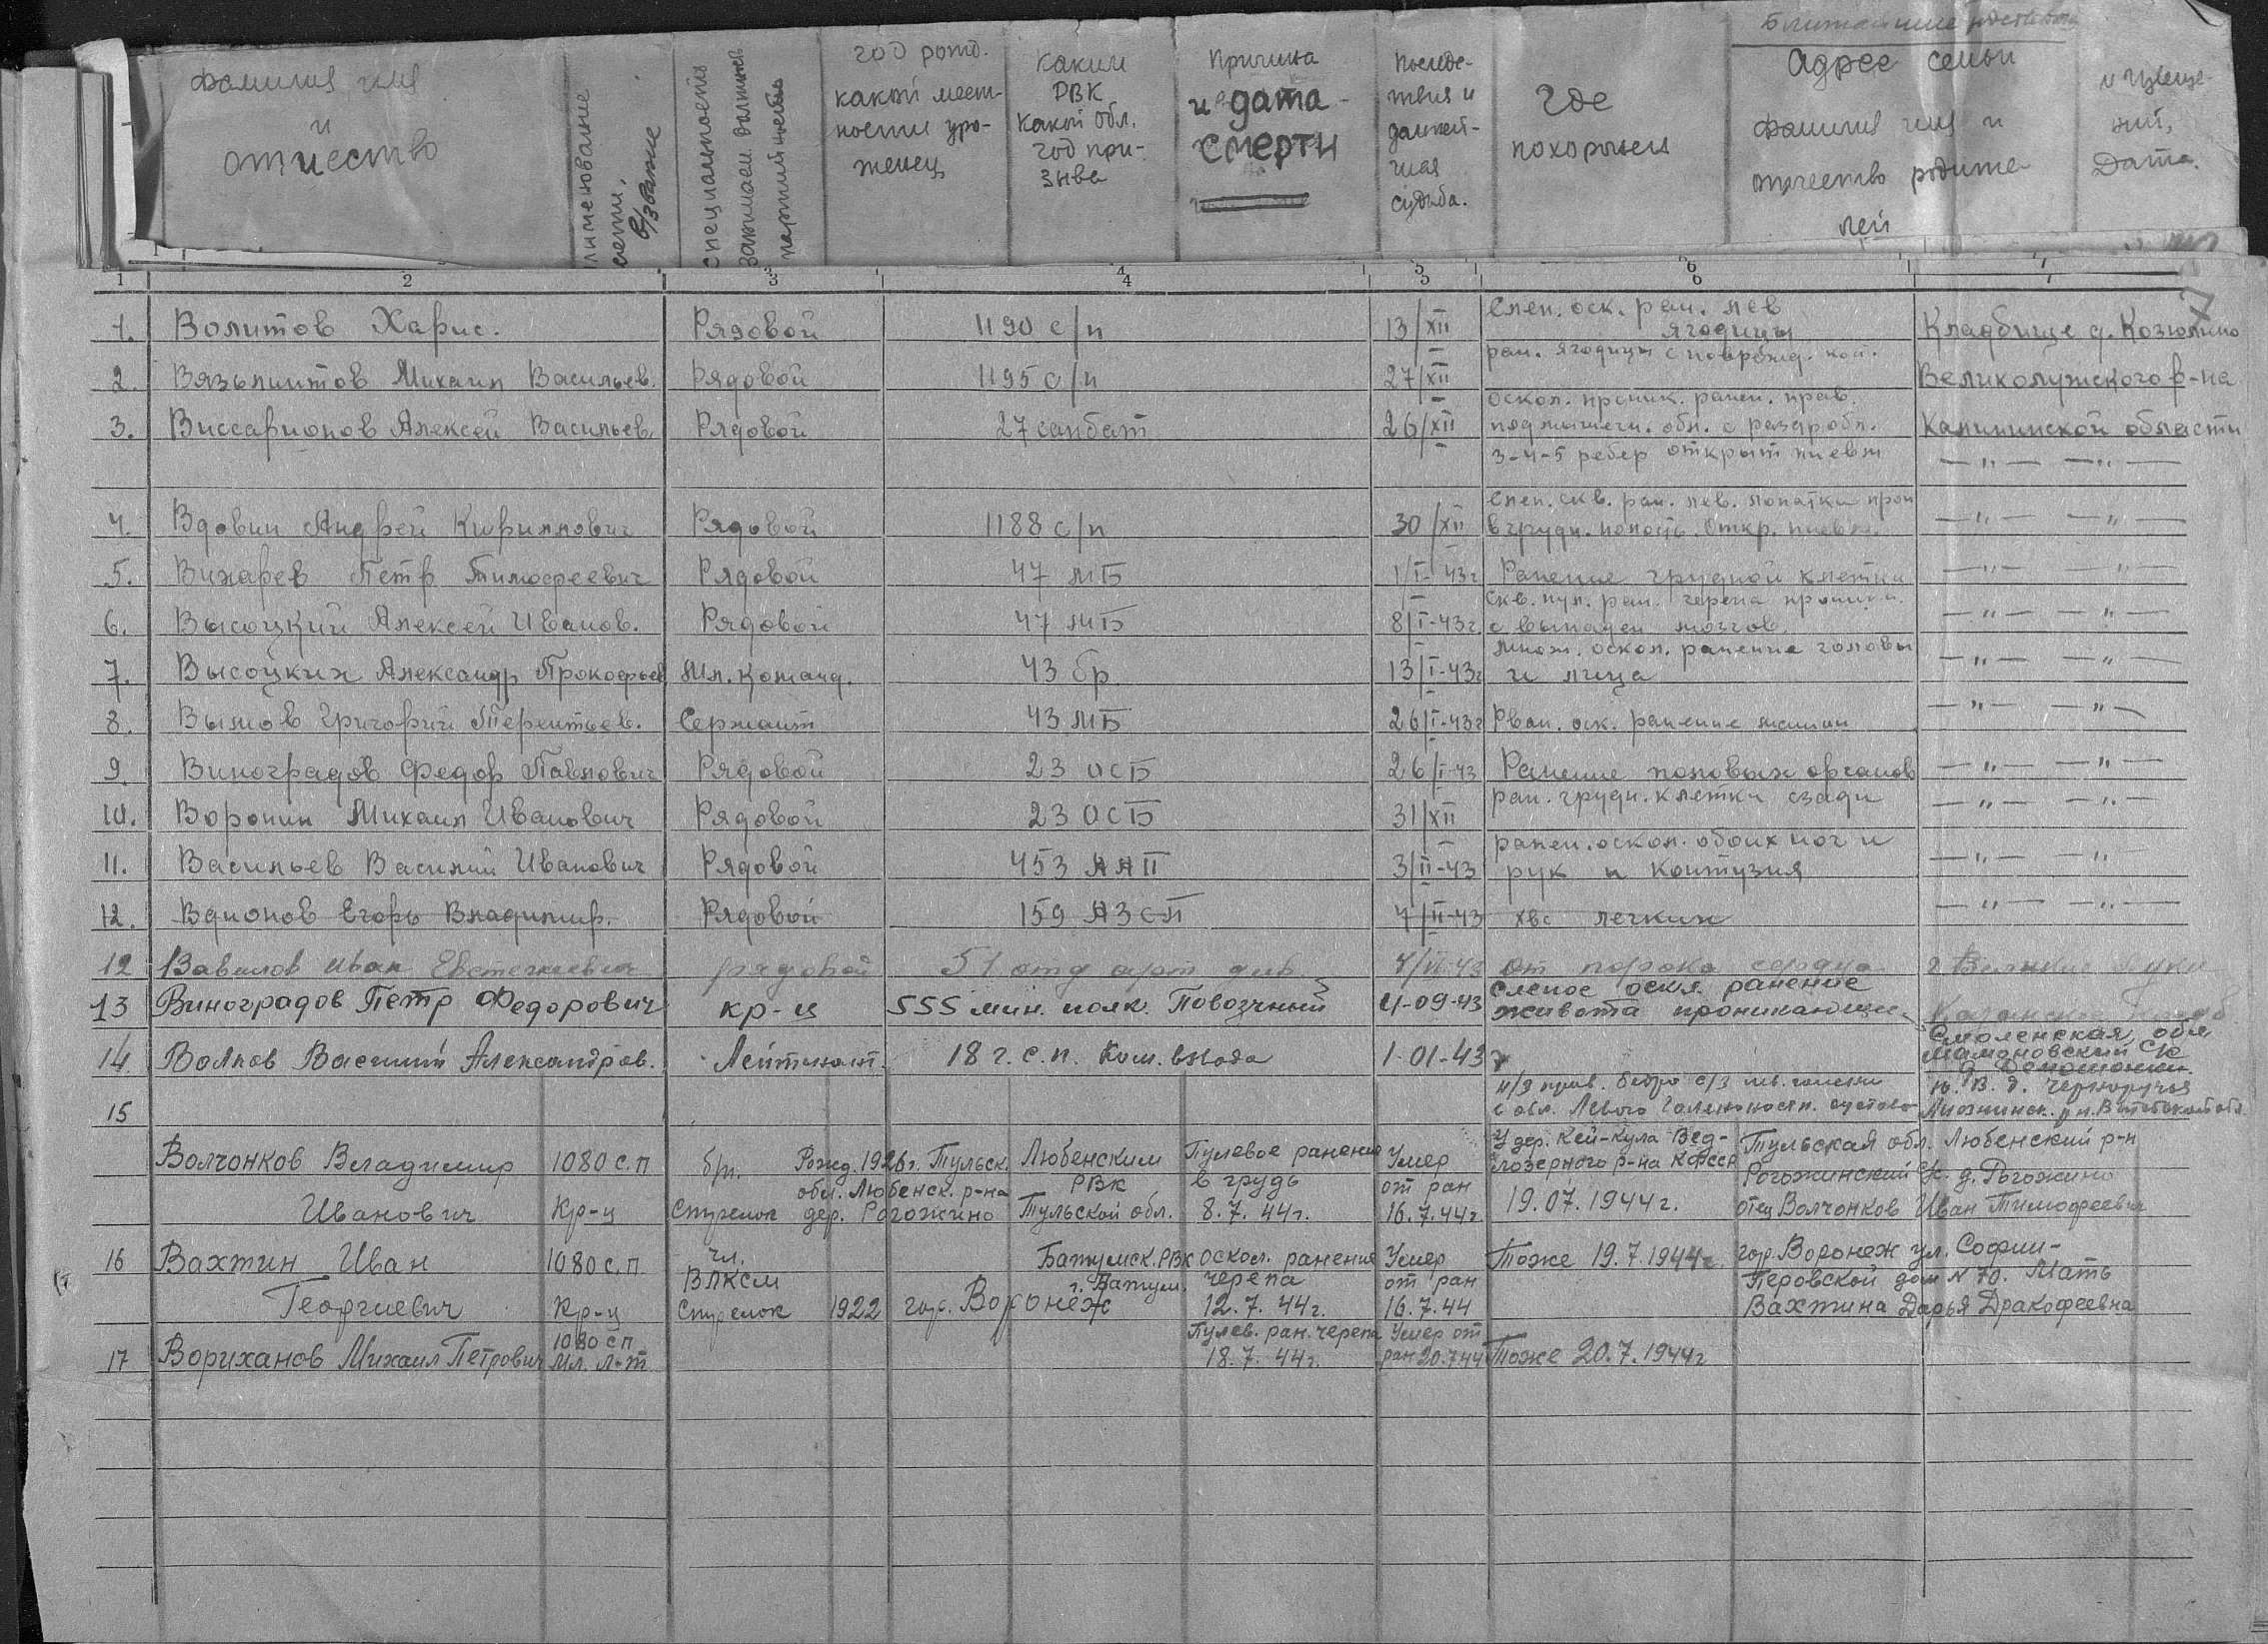 Фамилия имя
и
отчество
наименование
части,
в/звание
специальность
занимаем. должность
партийность
год рожд.
какой мест-
ности уро-
женец
каким
РВК
какой обл.
год при-
зыва
Причина
и дата
смерти
Последс-
твия и
дальней-
шая
судьба.
Где
похоронен
Ближайшие родствен
Адрес семьи
фамилия имя и
отчество родите-
лей
и извеще-
ний,
Дата.
1 2 3 4 5 6 7
1. Волитов Харис. Рядовой 1190 с/п 13/XII Слеп. оск. ран. лев
ягодицы Кладбище д. Козюлино
2. Вязьпитов Михаил Васильев. Рядовой 1195 с/п 27/XII ран. ягодицы с поврежд. кос. Великолужского р-на
3. Виссарионов Алексей Васильев. Рядовой 27 санбат 26/XII оскол. проник. ранен. прав.
подмышечн. обл. с раздробл. Калининской области
3-4-5 ребер открыт пневм — " — — " —
4. Вдовин Андрей Кириллович Рядовой 1188 с/п 30/XII Слеп. скв. ран. лев. лопатки прон
в грудн. полость. Откр. пневм. — " — — " —
5. Вихарев Петр Тимофеевич Рядовой 47 МБ 1/I-43г Ранение грудной клетки — " — — " —
6. Высоцкий Алексей Иванов. Рядовой 47 МБ 8/I-43г Скв. пул. ран. черепа проник.
с выпаден мозгов. — " — — " —
7. Высоцких Александр Прокофьев Мл. команд. 43 бр 13/I-43г Множ. оскол. ранение головы
и лица — " — — " —
8. Вымов Григорий Терентьев. Сержант 43 МБ 26/I-43г Рван. оск. ранение — " — — " —
9. Виноградов Федор Павлович Рядовой 23 ОСБ 26/I-43 Ранение половых органов — " — — " —
10. Воронин Михаил Иванович Рядовой 23 ОСБ 31/XII ран. грудн. клетки сзади — " — — " —
11. Васильев Василий Иванович Рядовой 453 ААП 3/II-43 ранен. оскол. обоих ног и
рук и контузия — " — — " —
12. Вдионов Егоръ Владимир. Рядовой 159 АЗСП 4/II-43 хвс легких — " — — " —
12 Вавилов Иван Евстегнеевич рядовой 51 отд арт див 4/II-43 от порока сердца г Великие Луки
13 Виноградов Петр Федорович кр-ц 555 мин. полк. Повозчный 4-09-43 Слепое оскл. ранение
живота проникающ.
14 Волков Василий Александров. Лейтенант. 18 г. с. п. Ком. взвода 1-01-43г Смоленская обл
Мамоновский с/с
15 н/з прав. бедра с/з лев. голени
с обл. Левого Голеностоп. сустава
ю. В. д. Черноручья
Лиознинск. р-н. Витебской обл.
Волчонков Владимир 1080 с.п б/п. Рожд. 1926г. Тульск. Любенским Пулевое ранение Умер У дер. Кей-Кула Вед-
лозерного р-на КФССР Тульская обл. Любенский р-н
обл. Любенск. р-на РВК в грудь от ран Рогожинский с/с. д. Рогожино
Иванович Кр-ц Стрелок дер. Рогожино Тульской обл. 8.7.44г. 16.7.44г. 19.07.1944г. отец Волчонков Иван Тимофеевич
16 Вахтин Иван 1080 с.п. чл. Батумск. РВК Оскол. ранение Умер Тоже 19.7.1944г. гор. Воронеж ул. Софии-
ВЛКСМ г. Батум. черепа от ран Перовской дом № 70. Мать
Георгиевич Кр-ц Стрелок 1922 гор. Воронеж 12.7.44г. 16.7.44 Вахтина Дарья Дракофеевна
17 Вориханов Михаил Петрович 1080 сп
Мл. л-т Пулев. ран. черепа
18.7.44г. Умер от
ран 20.7.44 Тоже 20.7.1944г